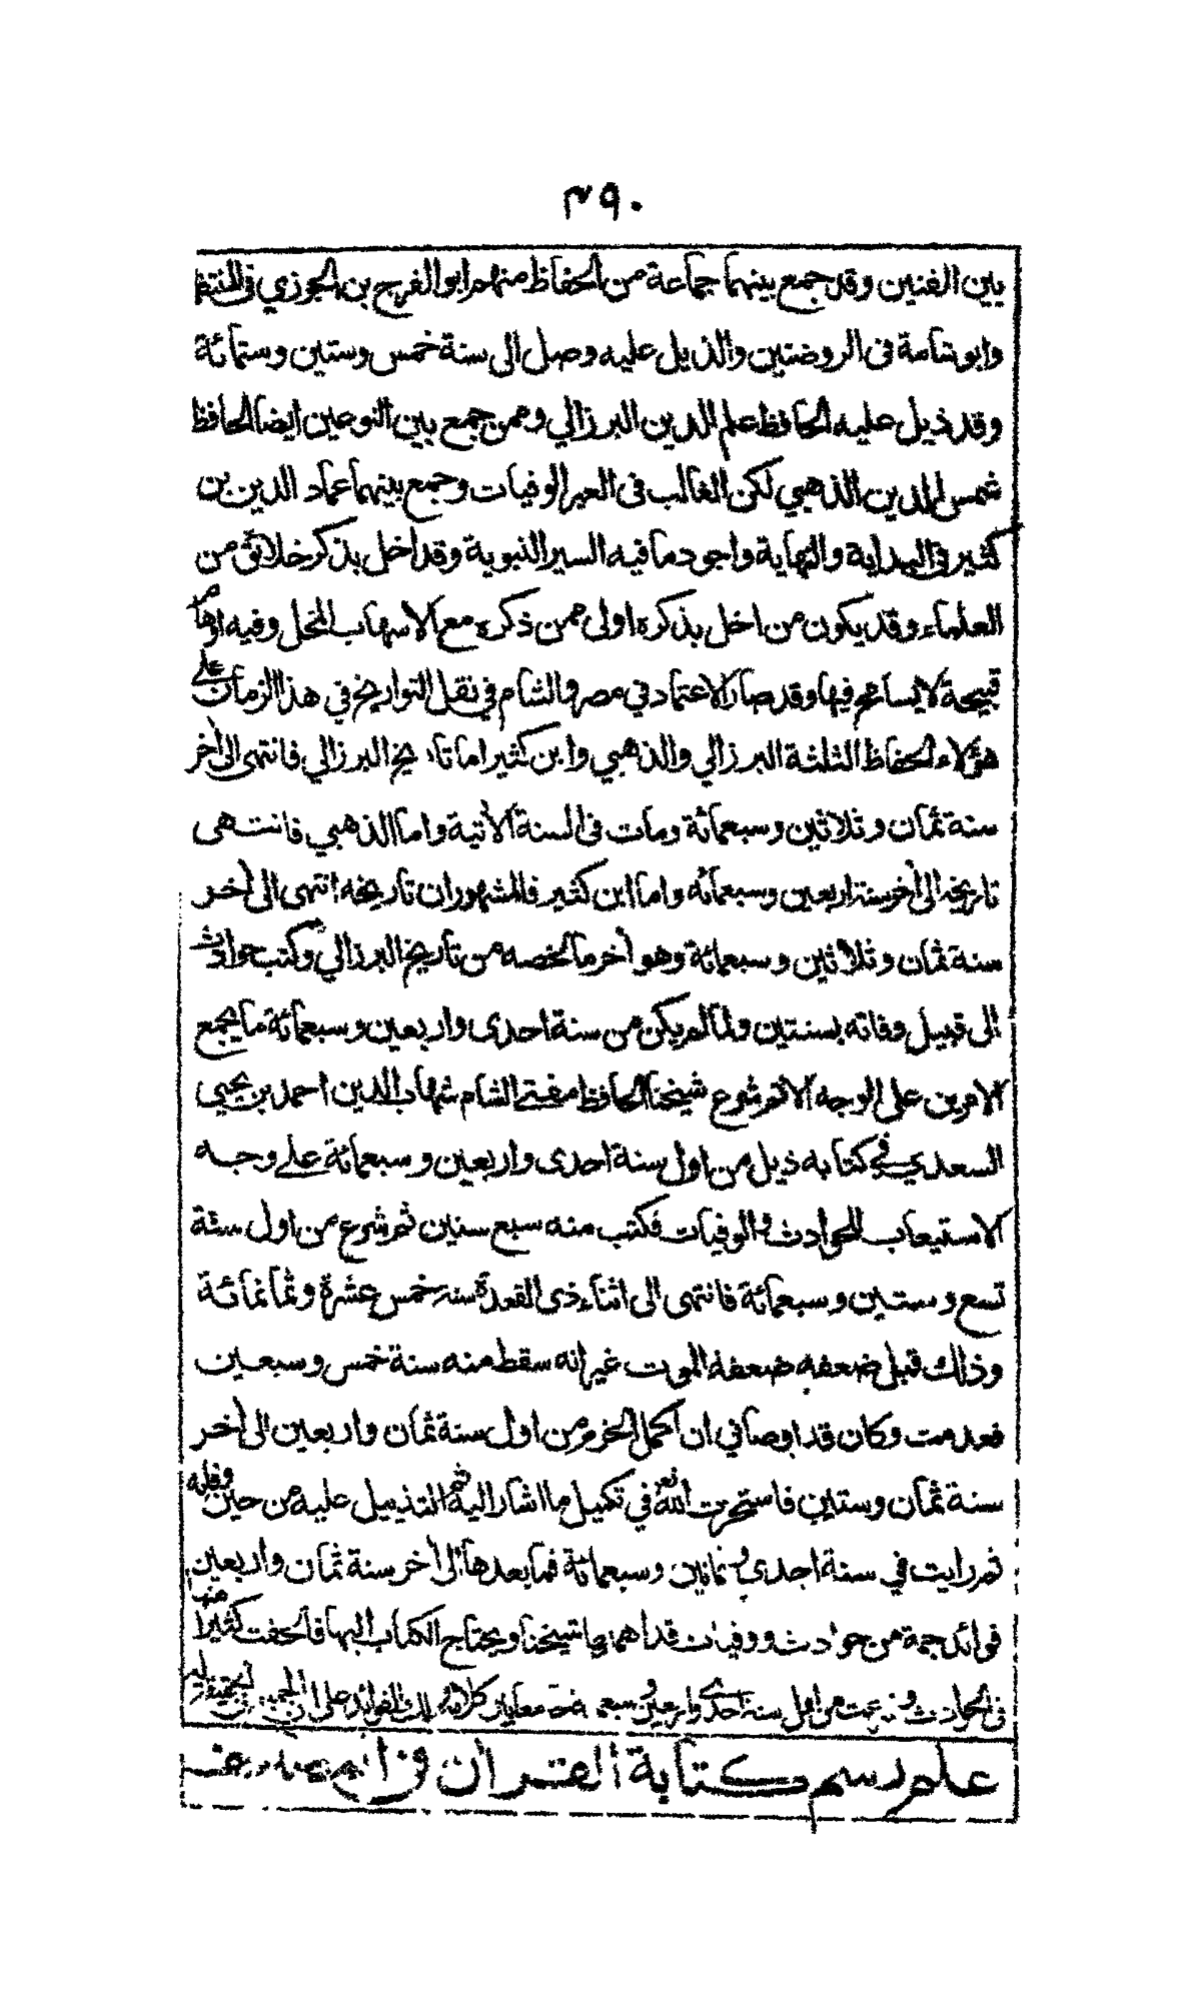 ٣٩٠
بين الفنين وقد جمع بينهما جماعة من الحفاظ منهم ابو الفرج بن الجوزي في المنتظم
وابو شامة في الروضتين والذيل عليه وصل الى سنة خمس وستين وستمائة
وقد ذيل عليه الحافظ علم الدين البرزالي وممن جمع بين النوعين ايضا الحافظ
شمس الدين الذهبي لكن الغالب في العبر الوفيات وجمع بينهما عماد الدين بن
كثير في البداية والنهاية واجود ما فيه السير النبوية وقد اخل بذكر خلائق من
العلماء وقد يكون من اخل بذكره اولى ممن ذكره مع الاسهاب المخل وفيه اوهام
قبيحة لا يسامح فيها وقد صار الاعتماد في مصر والشام في نقل التواريخ في هذا الزمان على
هؤلاء الحفاظ الثلثة البرزالي والذهبي وابن كثير اما تاريخ البرزالي فانتهى الى أخر
سنة ثمان وثلاثين وسبعمائة ومات في السنة الأتية واما الذهبي فانتهى
تاريخه الى أخر سنة اربعين وسبعمائه واما ابن كثير فالمشهور ان تاريخه انتهى الى أخر
سنة ثمان وثلاثين وسبعمائة وهو أخر ما لخصه من تاريخ البرزالي وكتب حوادث
الى قبيل وفاته بسنتين ولما لم يكن من سنة احدى واربعين وسبعمائة ما يجمع
الامرين على الوجه الاتم شرع شيخنا الحافظ مفتى الشام شهاب الدين احمد بن يحيى
السعدي في كتابه ذيل من اول سنة احدى واربعين وسبعمائة على وجه
الاستيعاب للحوادث والوفيات فكتب منه سبع سنين ثم شرع من اول سنة
تسع وستين وسبعمائة فانتهى الى اثناء ذى القعدة سنة خمس عشرة وثمانمائة
وذلك قبل ضعفه ضعفة الموت غير انه سقط منه سنة خمس وسبعين
فعدمت وكان قد اوصاني ان اكمل الخرم من اول سنة ثمان واربعين الى أخر
سنة ثمان وستين فاستخرت الله تعالى في تكميل ما اشار اليه ثم التذييل عليه من حين وفاته
ثم رايت في سنة احدي وثمانين وسبعمائة فما بعدها الى أخر سنة ثمان واربعين
فوائد جمة من حوادث ووفيات قد اهملها شيخنا ويحتاج الكتاب اليها فألحقت كثيرا منها
في الحوادث من اول سنة احدى واربعين وسبعمائة الفوائد على ان
علم رسم كتابة القرأن في